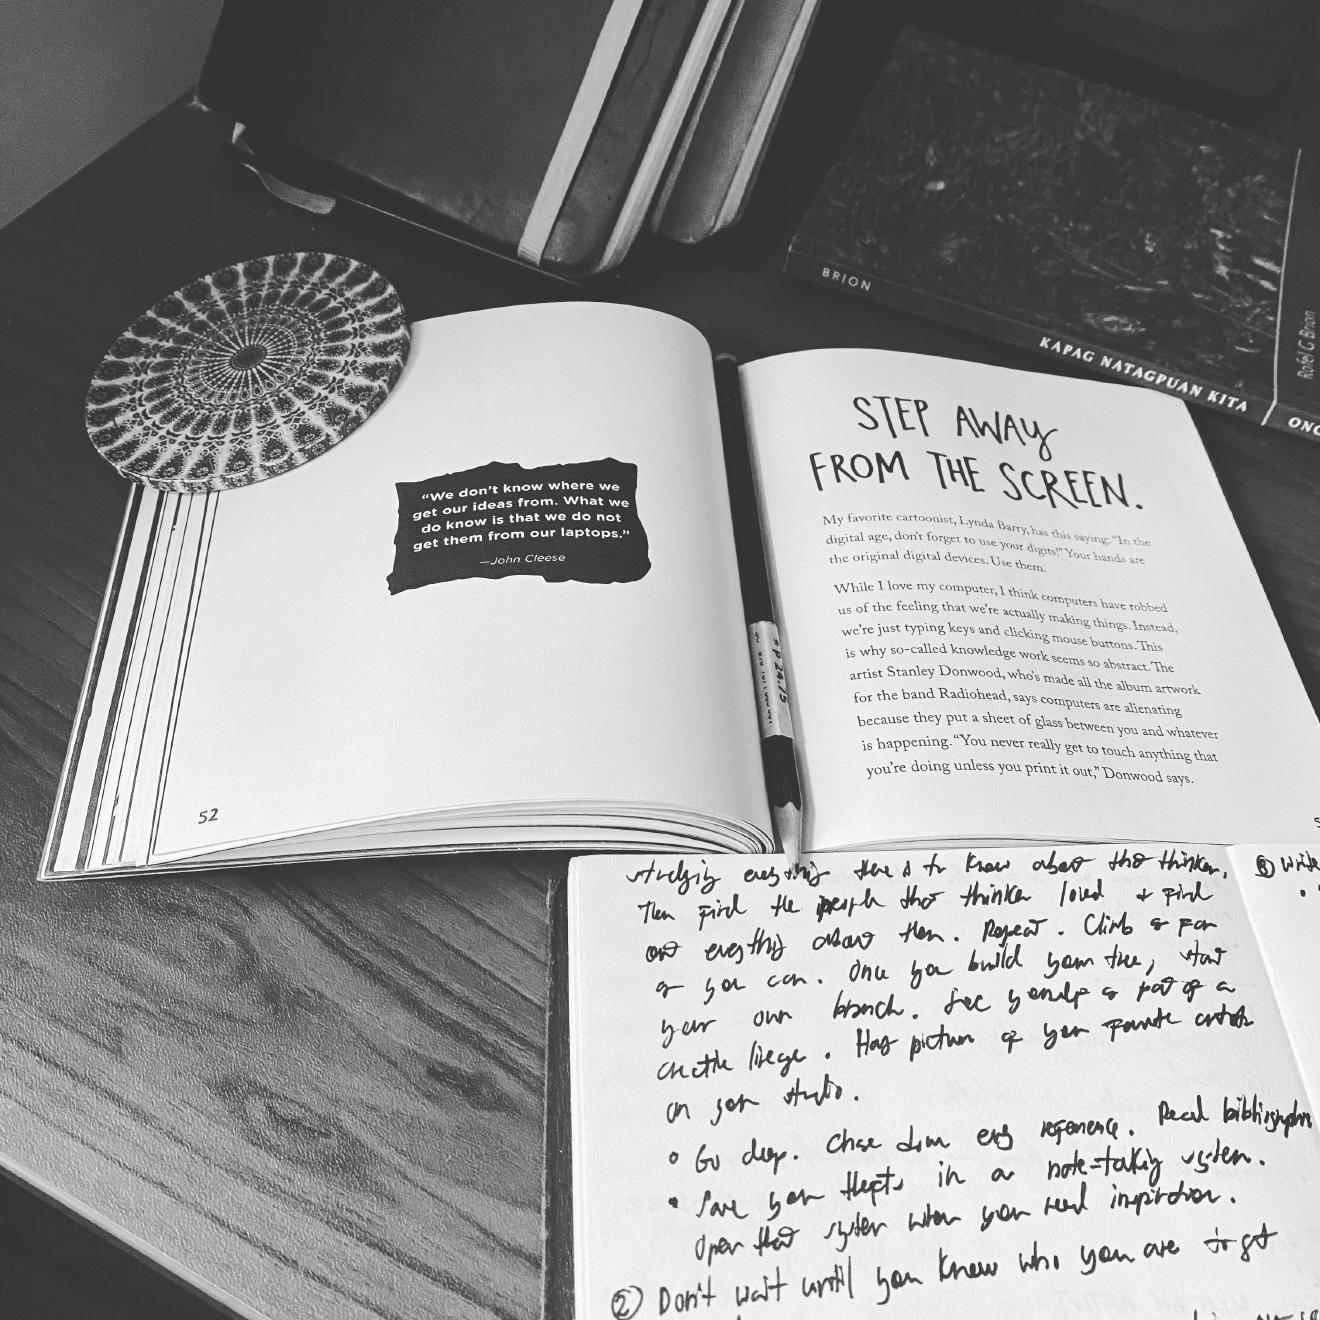 BRION
KAPAG NATAGPUAN KITA
Rofel G. Brion
“We don’t know where we
get our ideas from. What we
do know is that we do not
get them from our laptops.”
—John Cleese
52
STEP AWAY
FROM THE SCREEN.
My favorite cartoonist, Lynda Barry, has this saying: “In the
digital age, don’t forget to use your digits!” Your hands are
the original digital devices. Use them.
While I love my computer, I think computers have robbed
us of the feeling that we’re actually making things. Instead,
we’re just typing keys and clicking mouse buttons. This
is why so-called knowledge work seems so abstract. The
artist Stanley Donwood, who’s made all the album artwork
for the band Radiohead, says computers are alienating
because they put a sheet of glass between you and whatever
is happening. “You never really get to touch anything that
you’re doing unless you print it out,” Donwood says.
P 24.75
studying everything there is to know about that thinker.
Then find the people that thinker loved & find
out everything about them. Repeat. Climb as far
as you can. Once you build your tree, start
your own branch. See yourself as part of a
creative lineage. Hang pictures of your favorite artists
in your studio.
• Go deep. Chase down every reference. Read bibliographies
• Save your thefts in a note-taking system.
Open that system when you need inspiration.
② Don't wait until you know who you are to get
③ Write